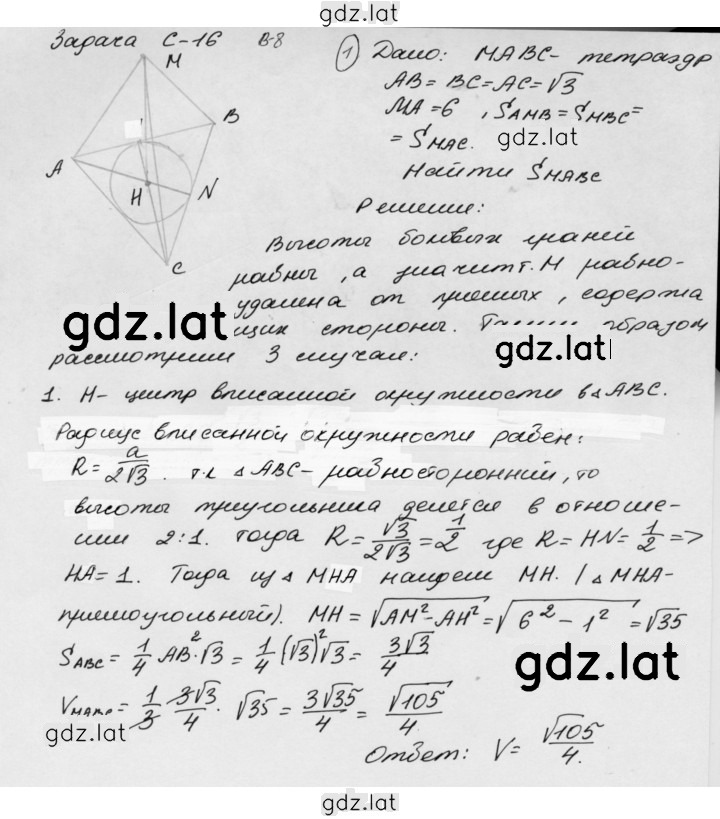 gdz.lat
Задача С-16 В-8
M
B
A
H
N
C
1 Дано: МАВС- тетраэдр
AB = BC = AC = √3
MA = 6 , S_AMB = S_MBC =
= S_MAC.
gdz.lat
Найти S_MABC
Решение:
Высоты боковых граней
равны, а значит т. М равно-
удалена от прямых, содержа
gdz.lat
щих стороны. образом
gdz.lat
рассмотрим 3 случая:
1. Н- центр вписанной окружности в △ABC.
Радиус вписанной окружности равен:
R = a/2√3 . т.к △ABC- равносторонний, то
высоты треугольника делятся в отноше-
нии 2:1. тогда R = √3/2√3 = 1/2 где R = HN = 1/2 =>
HA = 1. Тогда из △ MHA найдем MH. (△ MHA-
прямоугольный). MH = √AM²-AH² = √6²-1² = √35
S_ABC = 1/4 AB²·√3 = 1/4 (√3)²√3 = 3√3/4
gdz.lat
= 1/3 · 3√3/4 · √35 = 3√35/4 = √105/4.
gdz.lat
Ответ: V = √105/4.
gdz.lat